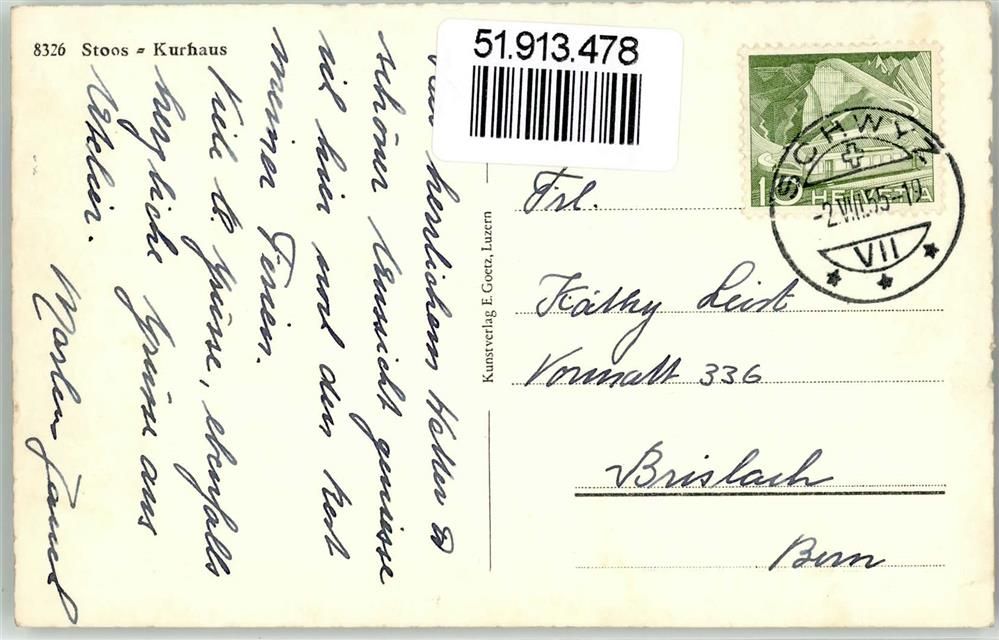 8326 Stoos - Kurhaus
51.913.478
herrlichem Wetter &
schöner Aussicht geniesse
ich hier noch den Rest
meiner Ferien.
Viele lb. Grüsse, ebenfalls
herzliche Grüsse ans
Atelier.
Kunstverlag E. Goetz, Luzern
10 HELVETIA
SCHWYZ
-2.VIII.55-19
VII
Frl.
Käthy Leist
336
Brislach
Bern